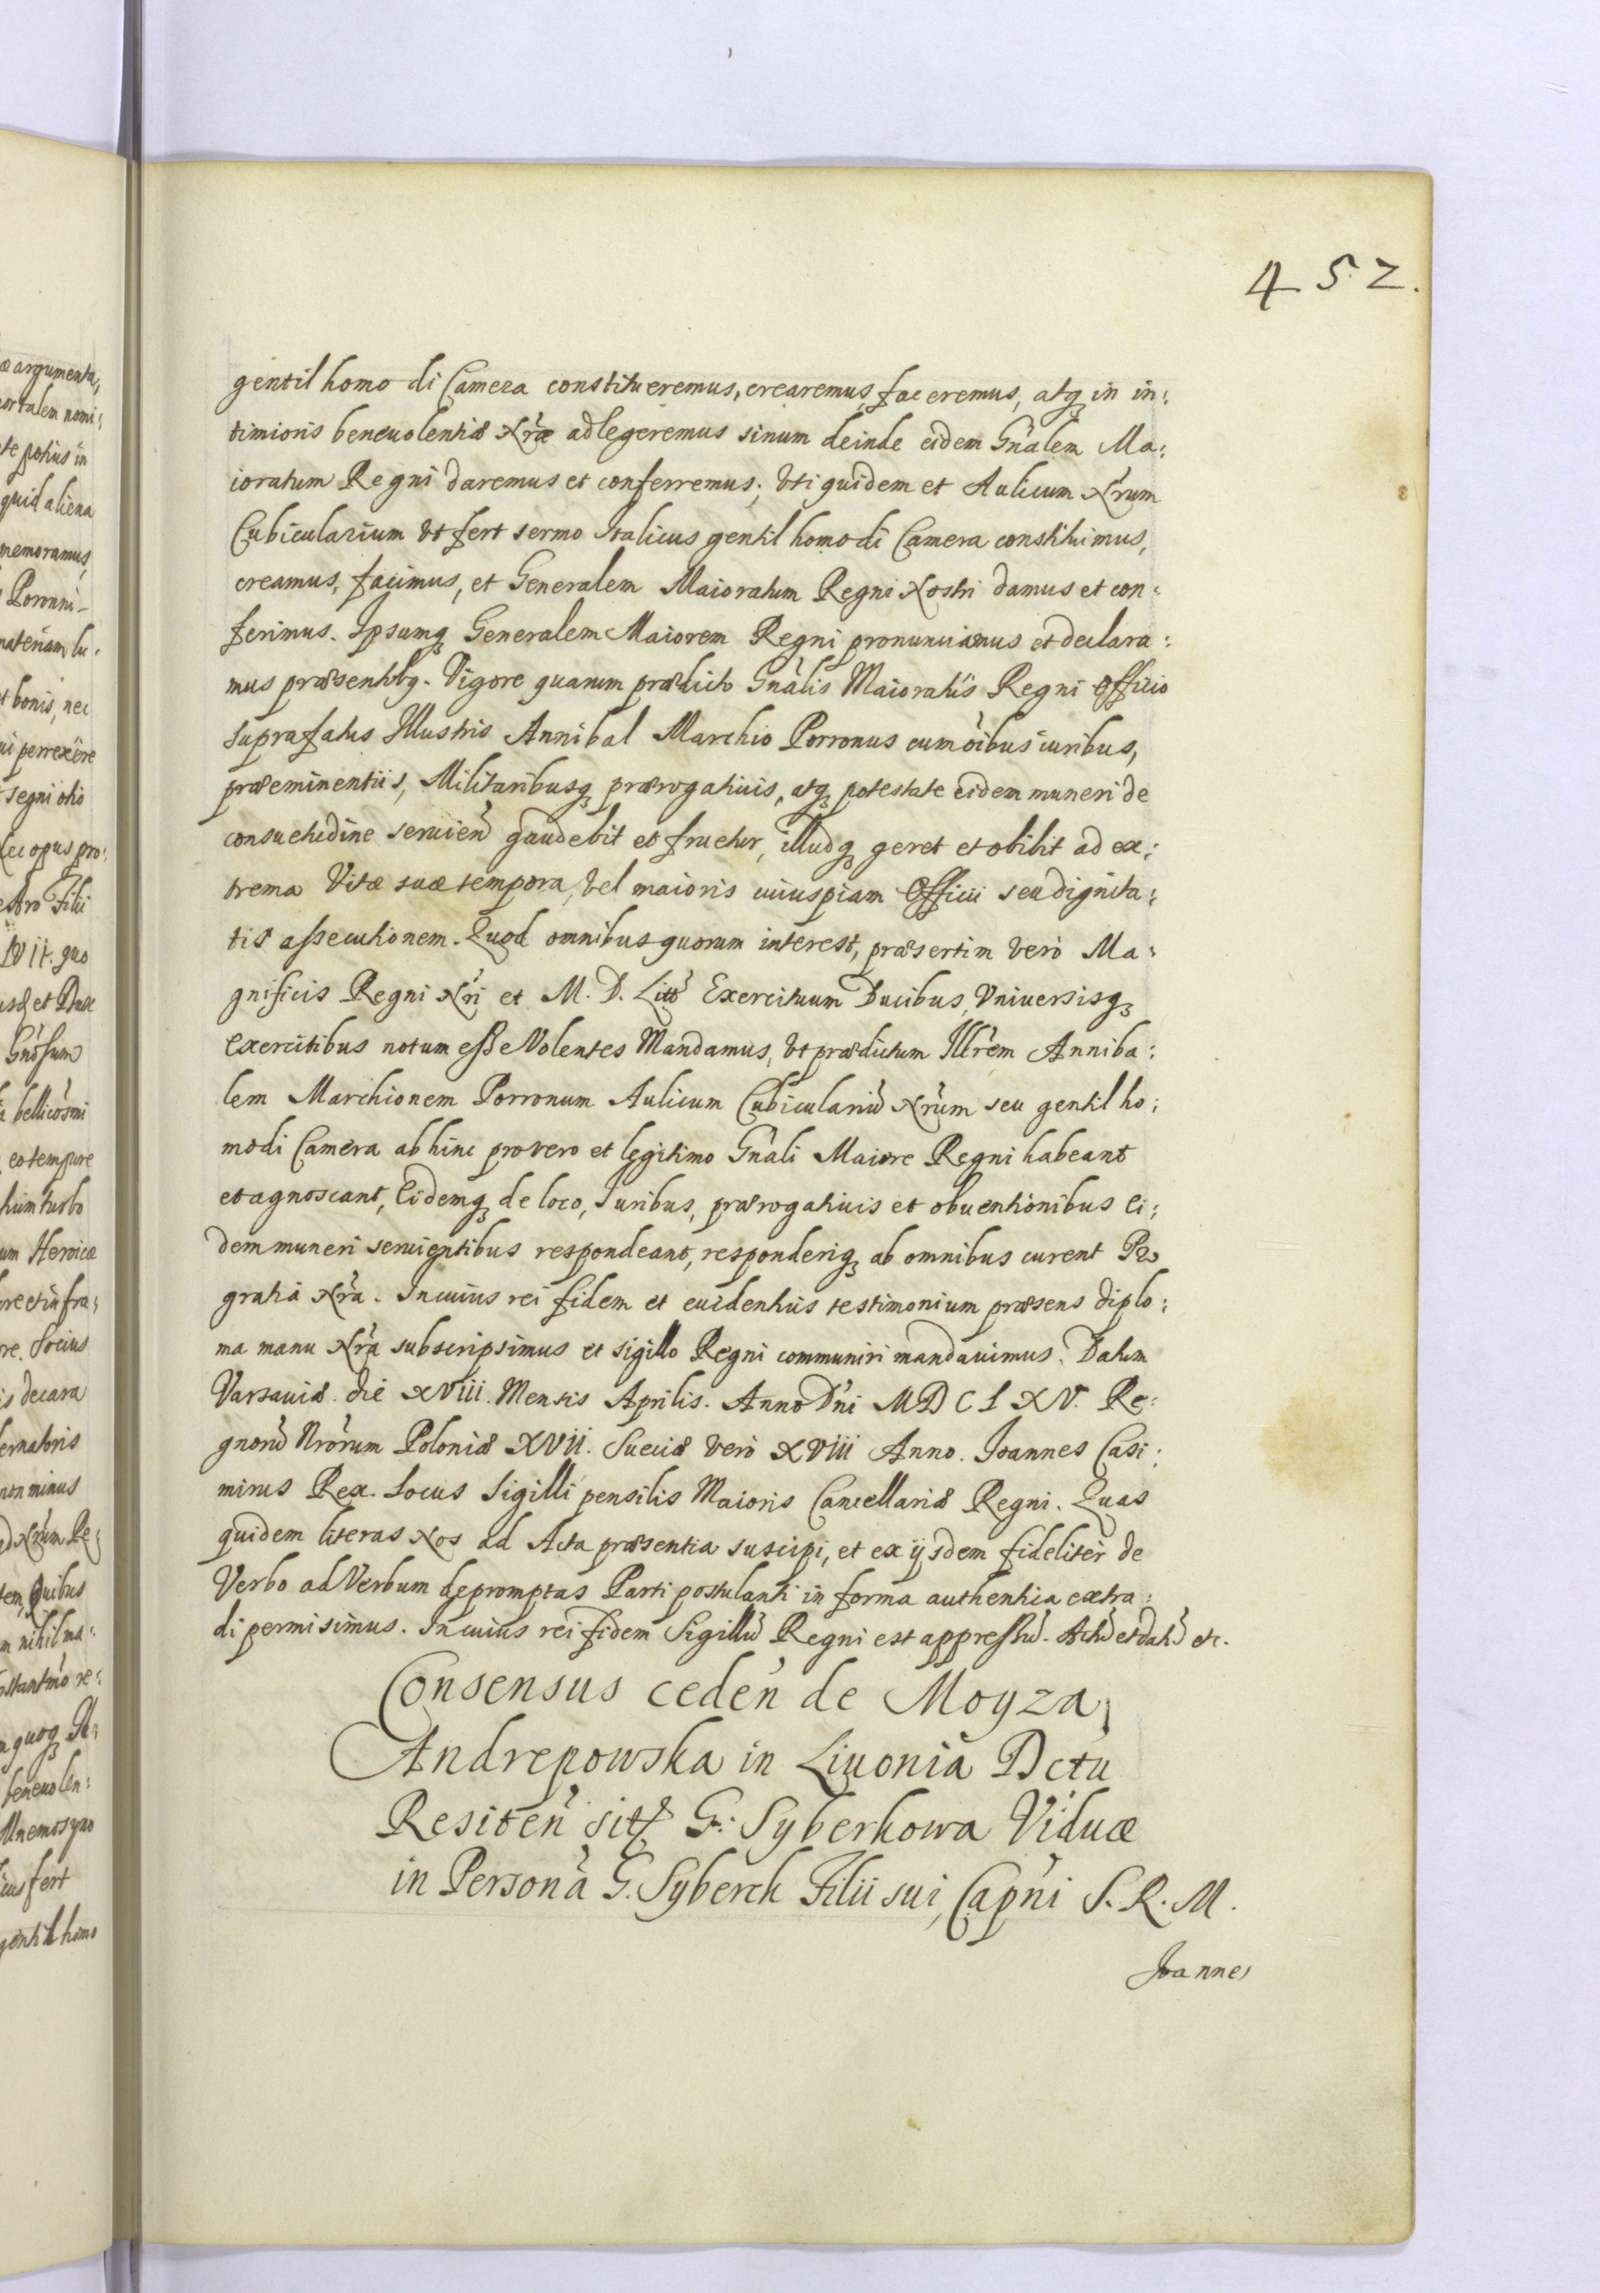 452.
gentil homo di Camera constitueremus, crearemus, faceremus, atq in in:
timioris beneuolentiæ Nræ adlegeremus sinum deinde eidem Gnalem Ma:
ioratum Regni daremus et conferremus; Vti quidem et Aulicum Nrum
Cubicularium Vt fert sermo Italicus gentil homo di Camera constituimus,
creamus, facimus, et Generalem Maioratum Regni Nostri damus et con:
ferimus. Ipsumq Generalem Maiorem Regni pronunciamus et declara:
mus præsentibq. Vigore quarum prædicto Gnalis Maioratus Regni Officio
suprafatus Illustris Annibal Marchio Porronus cum oibus iuribus,
præeminentiis, Militaribusq prærogatiuis, atq potestate eidem muneri de
consuetudine seruien gaudebit et fruetur, illudq geret et obibit ad ex:
trema Vitæ suæ tempora, Vel maioris cuiuspiam Officii seu dignita:
tis assecutionem. Quod omnibus quorum interest, præsertim Vero Ma:
gnificis Regni Nri et M. D. Litt Exercituum Ducibus, Vniuersisq
Exercitibus notum esse Volentes Mandamus, Vt prædictum Illrem Anniba:
lem Marchionem Porronum Aulicum Cubiculariu Nrum seu gentil ho:
mo di Camera ab hinc pro vero et legitimo Gnali Maiore Regni habeant
et agnoscant, Eidemq de loco, Iuribus, prærogatiuis et obuentionibus ei:
dem muneri seruientibus respondeant, responderiq ab omnibus curent Pro
gratia Nra. In cuius rei fidem et euidentius testimonium præsens diplo:
ma manu Nra subscripsimus et sigillo Regni communiri mandauimus. Datum
Varsauiæ die XVIII. Mensis Aprilis. Anno Dni MDCLXV. Re:
gnoru Nrorum Poloniæ XVII. Sueciæ Vero XVIII Anno. Joannes Casi:
mirus Rex. Locus Sigilli pensilis Maioris Cancellariæ Regni. Quas
quidem literas Nos ad Acta præsentia suscipi, et ex ijsdem fideliter de
Verbo ad Verbum depromptas Parti postulanti in forma authentica extra:
di permisimus. In cuius rei fidem Sigillu Regni est appressu. Actu et datu etc.
Consensus ceden de Moyza
Andrepowska in Liuonia Dctu
Resiten sit G: Syberkowa Viduæ
in Persona G. Syberch Filii sui, Capni S. R. M.
Joannes